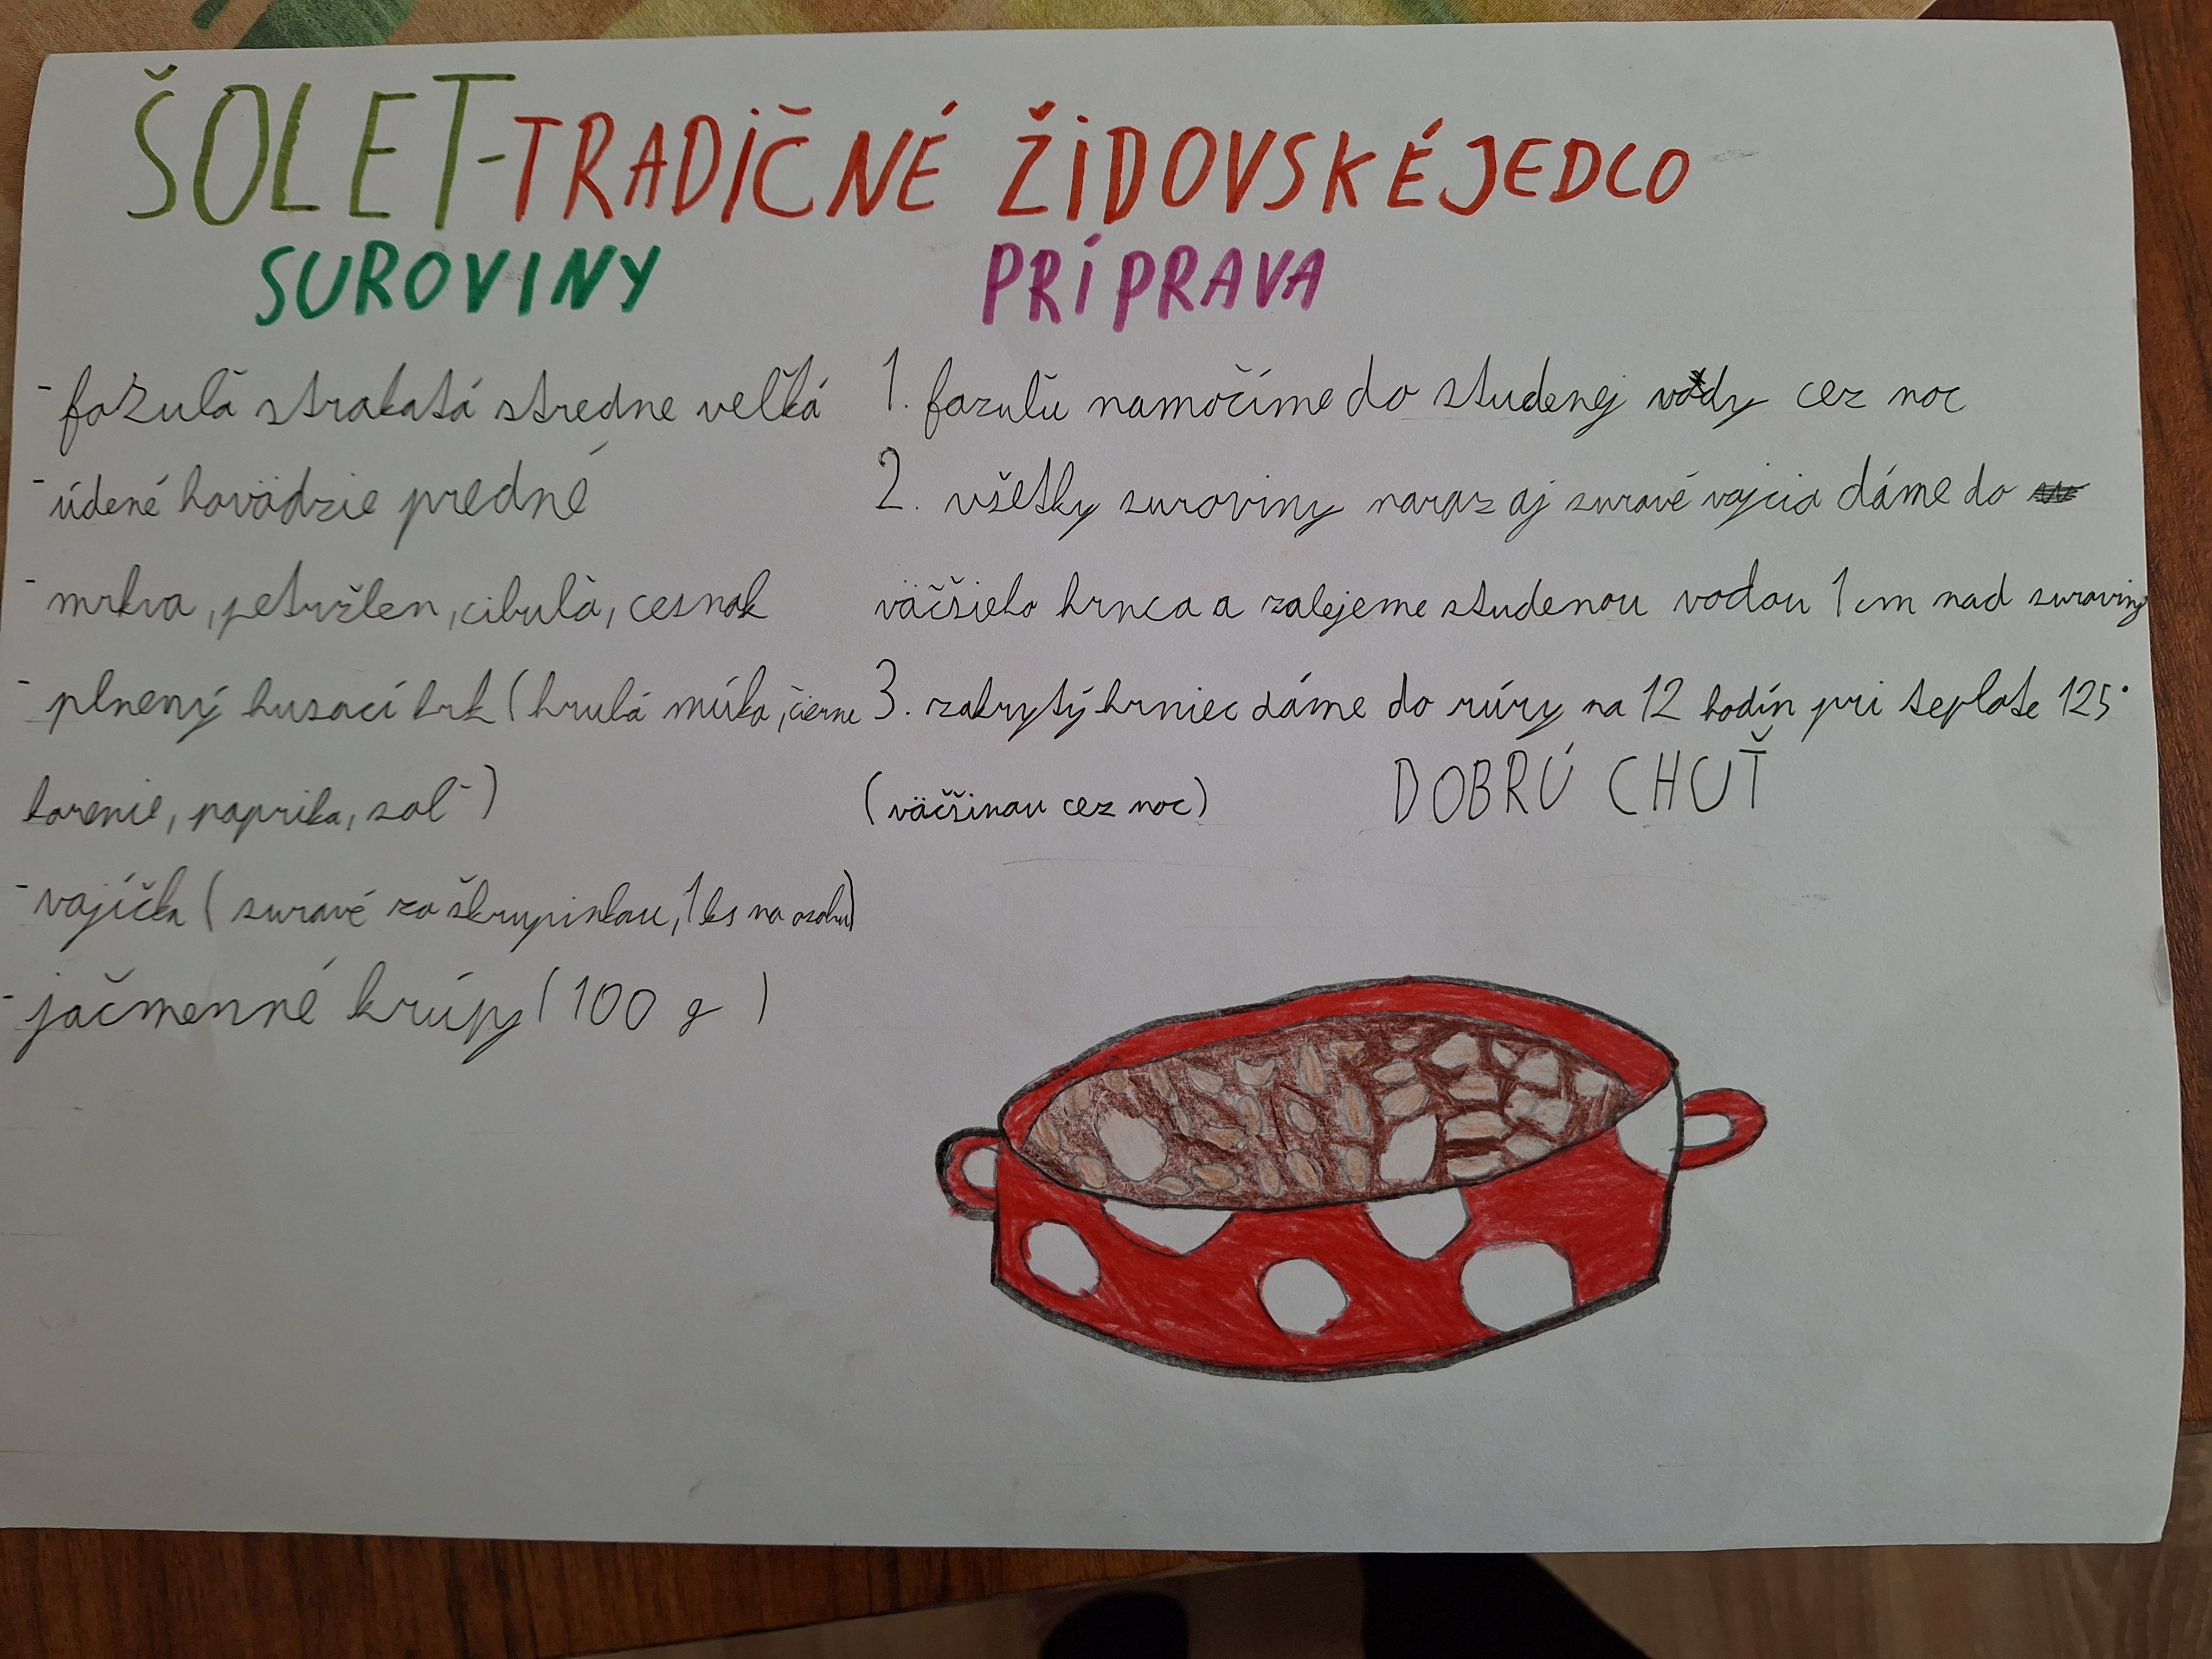 ŠOLET-TRADIČNÉ ŽIDOVSKÉ JEDLO
SUROVINY
- fazuľa strakatá stredne veľká
- údené hovädzie predné
- mrkva, petržlen, cibuľa, cesnak
- plnený husací krk (hrubá múka, čierne
korenie, paprika, soľ)
- vajíčka (surové zo škrupinkou, 1 ks na osobu)
- jačmenné krúpy (100 g)
PRÍPRAVA
1. fazuľu namočíme do studenej vody cez noc
2. všetky suroviny naraz aj surové vajcia dáme do
väčšieho hrnca a zalejeme studenou vodou 1 cm nad suroviny
3. zakrytý hrniec dáme do rúry na 12 hodín pri teplote 125°
(väčšinou cez noc)
DOBRÚ CHUŤ